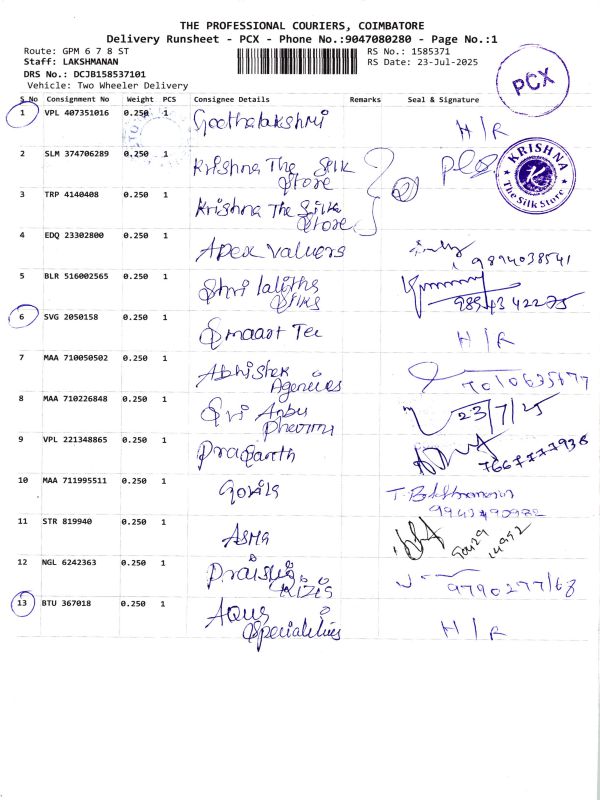 THE PROFESSIONAL COURIERS, COIMBATORE
Delivery Runsheet - PCX - Phone No.:9047080280 - Page No.:1
Route: GPM 6 7 8 ST
RS No.: 1585371
Staff: LAKSHMANAN
RS Date: 23-Jul-2025
DRS No.: DCJB158537101
Vehicle: Two Wheeler Delivery
PCX
S No Consignment No Weight PCS Consignee Details Remarks Seal & Signature
1 VPL 407351016 0.250 1 Geethalakshmi H/R
2 SLM 374706289 0.250 1 Krishna The Silk
Store
KRISHNA
The Silk Store
3 TRP 4140408 0.250 1 Krishna The Silk
Store
4 EDQ 23302800 0.250 1 Apex valuers
9894038541
5 BLR 516002565 0.250 1 Shri lalitha
Silks
98943 42275
6 SVG 2050158 0.250 1 Smaart Tec H/R
7 MAA 710050502 0.250 1 Abhishek
Agencies
8 MAA 710226848 0.250 1 Sri Anbu
Pharma
23/7/25
9 VPL 221348865 0.250 1 Prasanth
7667777938
10 MAA 711995511 0.250 1 Govila
11 STR 819940 0.250 1 ASMA
12 NGL 6242363 0.250 1
13 BTU 367018 0.250 1 Aqua
Specialities H/R